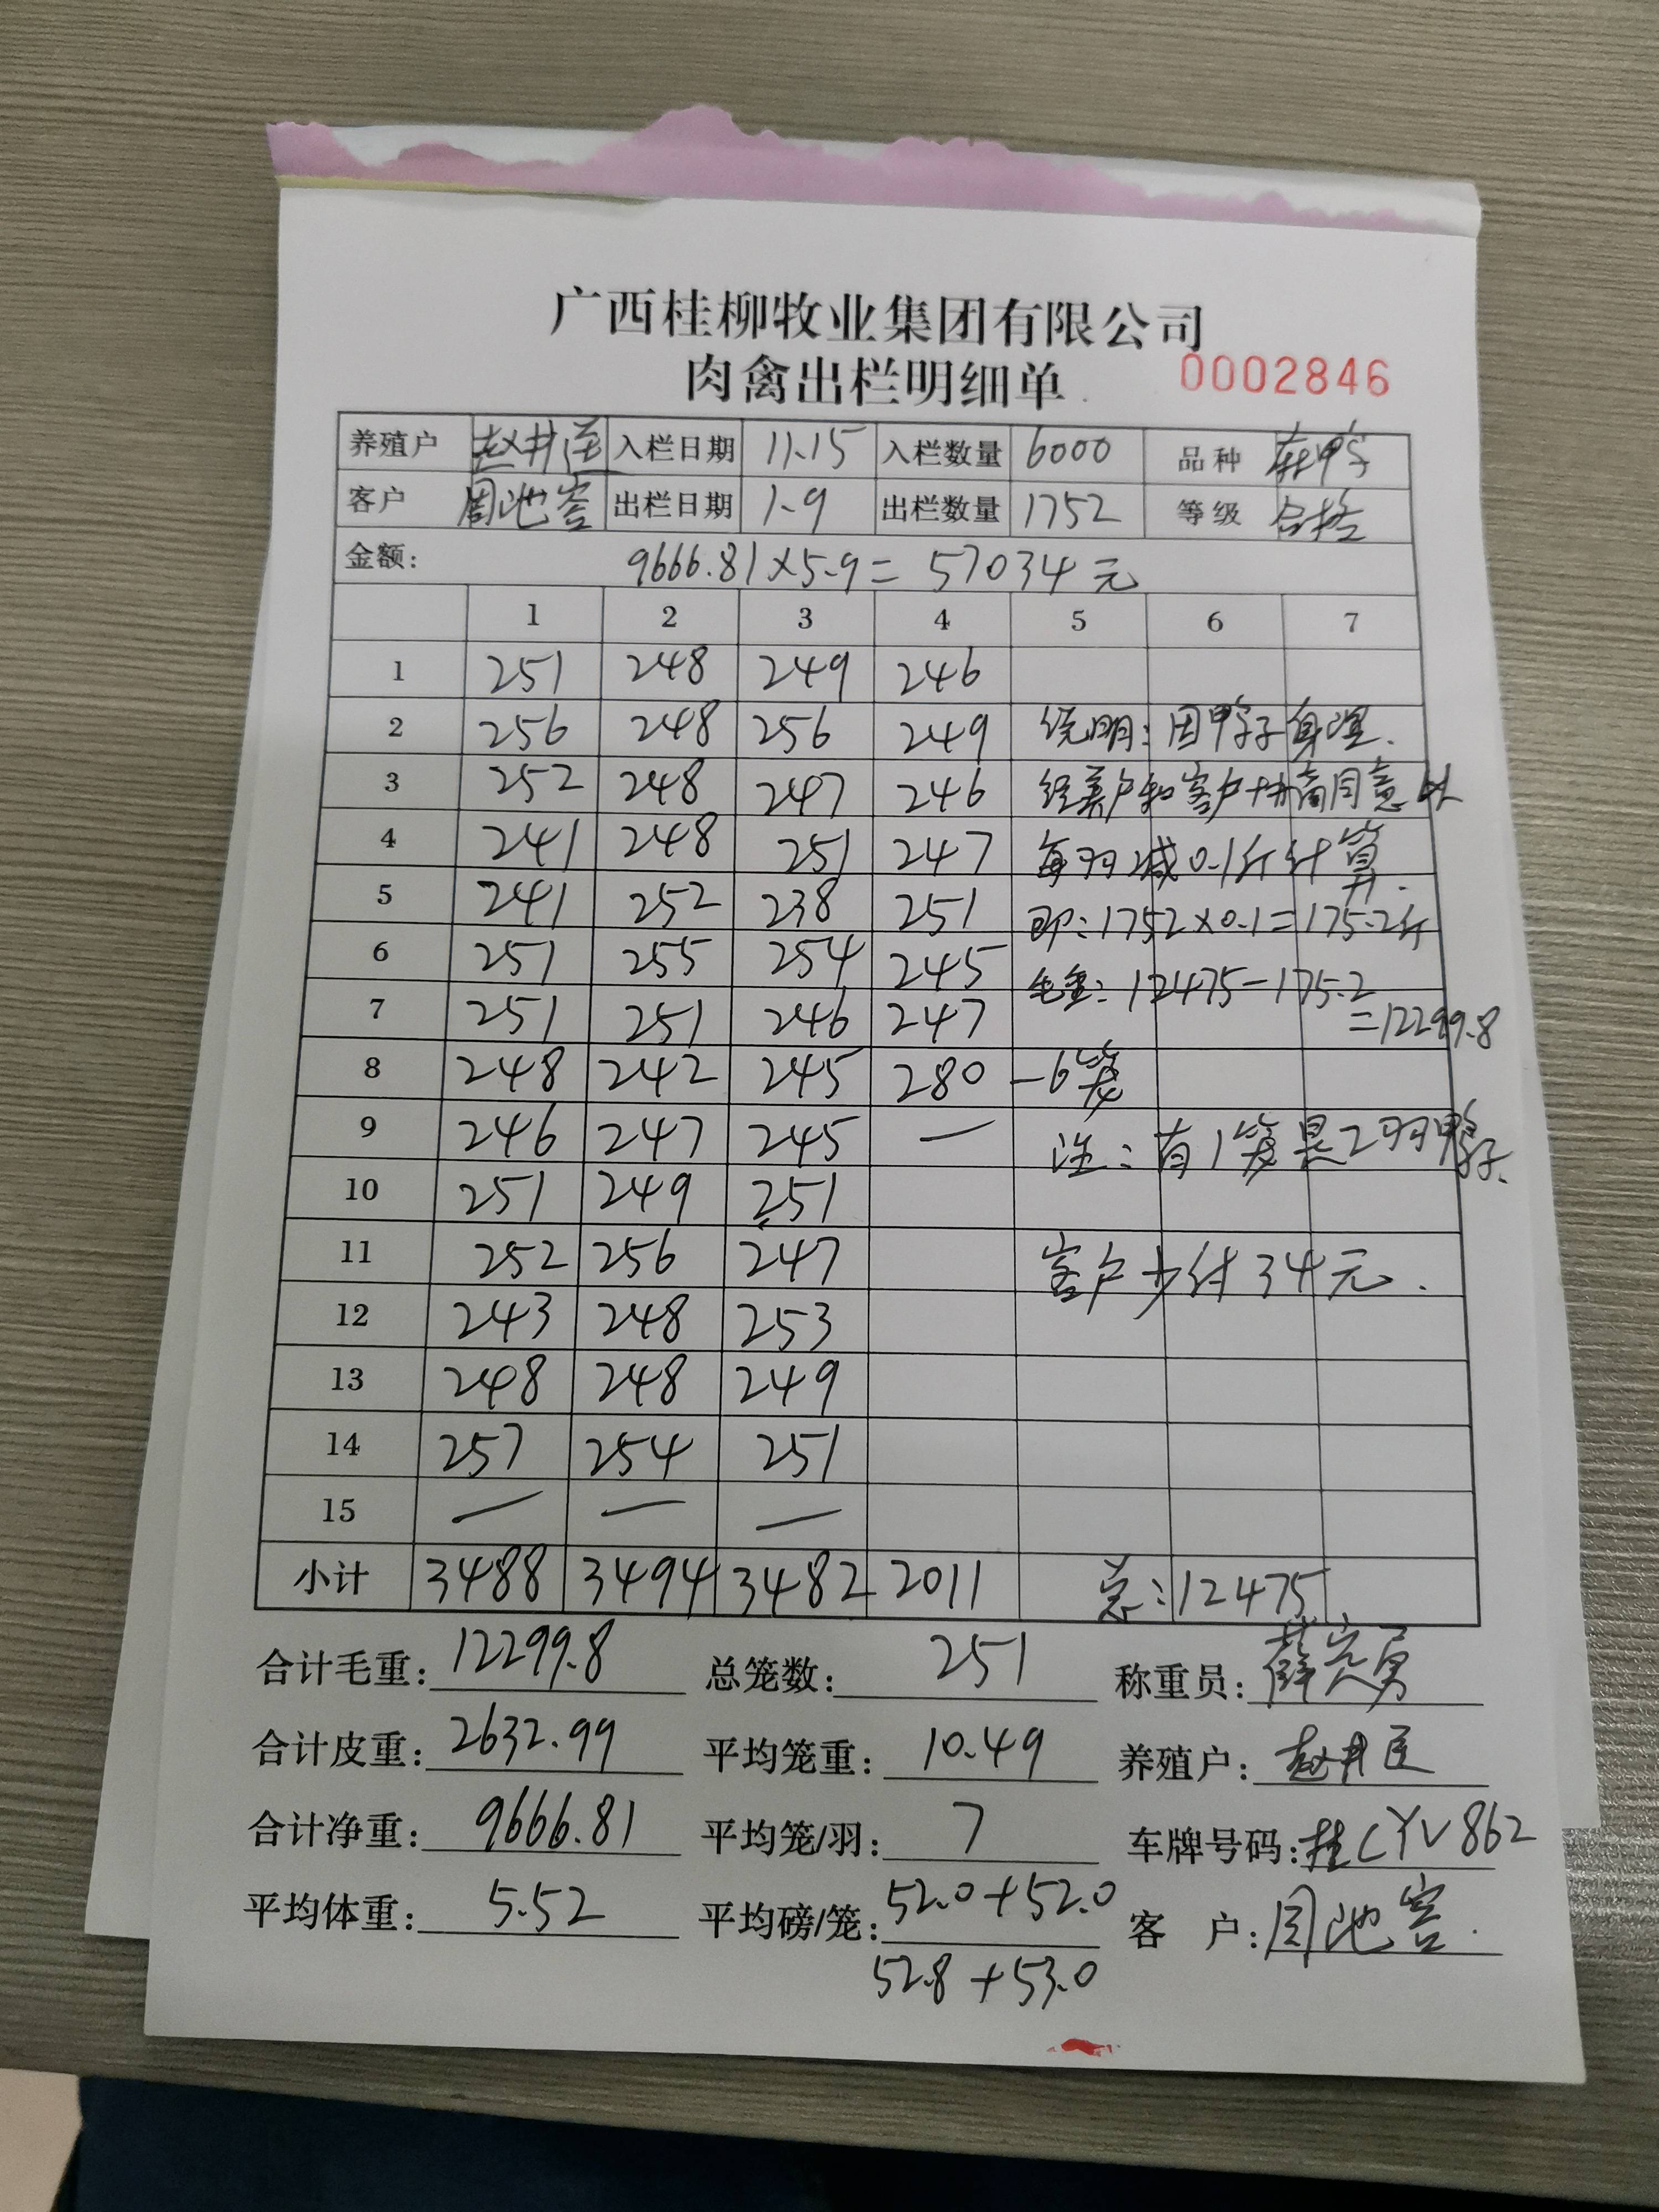 广西桂柳牧业集团有限公司
肉禽出栏明细单 0002846
养殖户 赵井 入栏日期 11.15 入栏数量 6000 品种
客户 周池 出栏日期 1.9 出栏数量 1752 等级 合格
金额: 9666.81×5.9=57034元
1 2 3 4 5 6 7
1 251 248 249 246
2 256 248 256 249 说明:因鸭子身湿.
3 252 248 247 246 经养户和客户协商同意从
4 241 248 251 247 每羽减0.1斤计算.
5 241 252 238 251 即:1752×0.1=175.2斤
6 251 255 254 245 毛重:12475-175.2
7 251 251 246 247 =12299.8
8 248 242 245 280 -6笼
9 246 247 245 — 注:有1笼是2羽鸭子.
10 251 249 251
11 252 256 247 客户少付34元.
12 243 248 253
13 248 248 249
14 257 254 251
15 — — —
小计 3488 3494 3482 2011 总:12475
合计毛重: 12299.8 总笼数: 251 称重员: 薛 勇
合计皮重: 2632.99 平均笼重: 10.49 养殖户: 赵井
合计净重: 9666.81 平均笼/羽: 7 车牌号码: 桂CYV862
平均体重: 5.52 平均磅/笼: 52.0+52.0 客 户: 周池
52.8+53.0